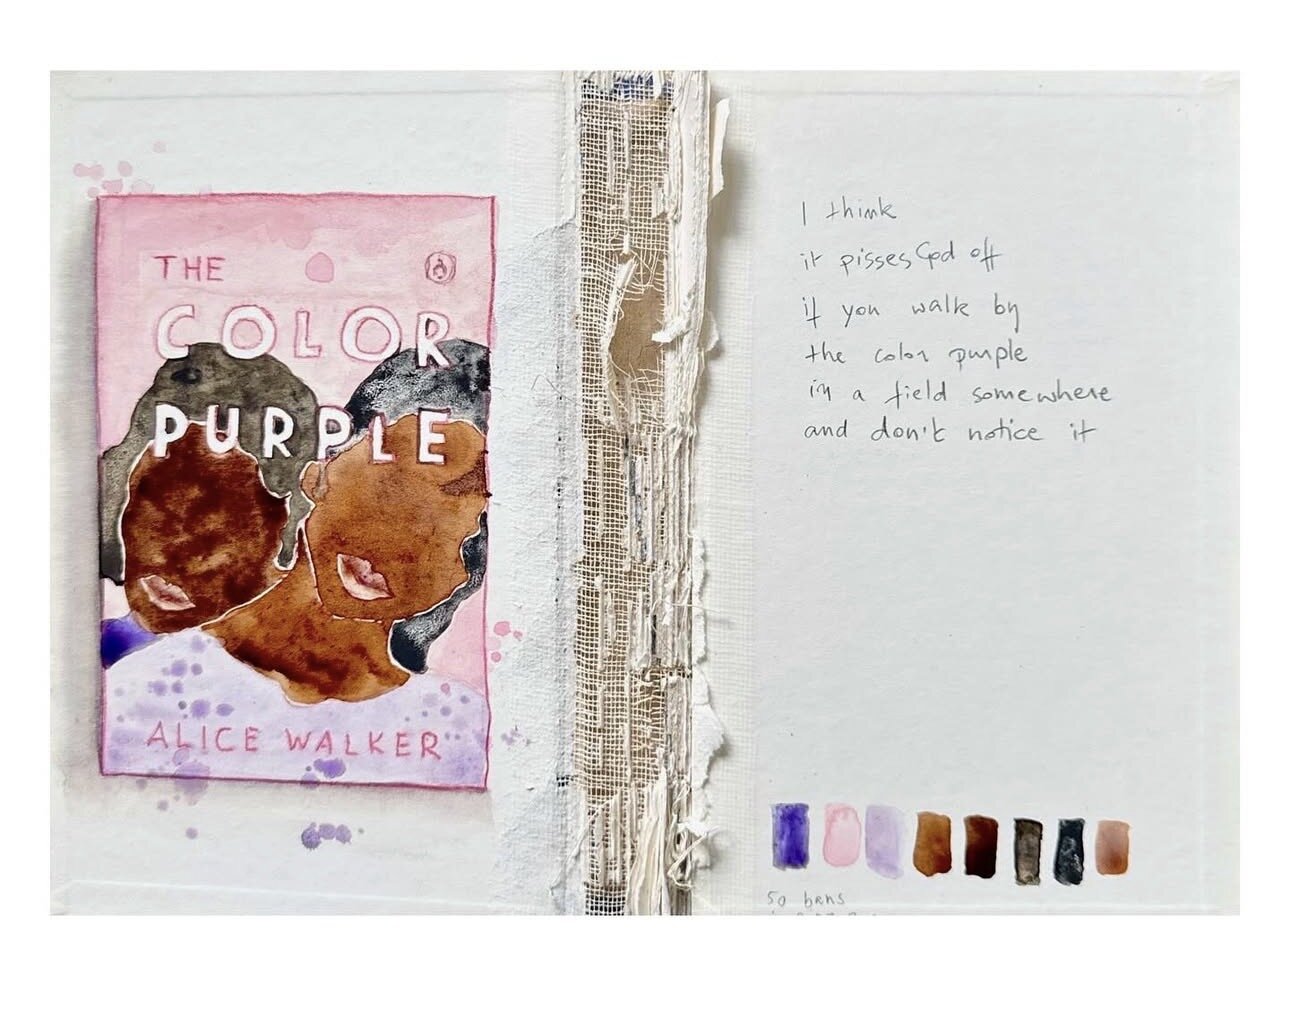 THE
COLOR
PURPLE
ALICE WALKER
I think
it pisses God off
if you walk by
the color purple
in a field somewhere
and don't notice it
50 bans